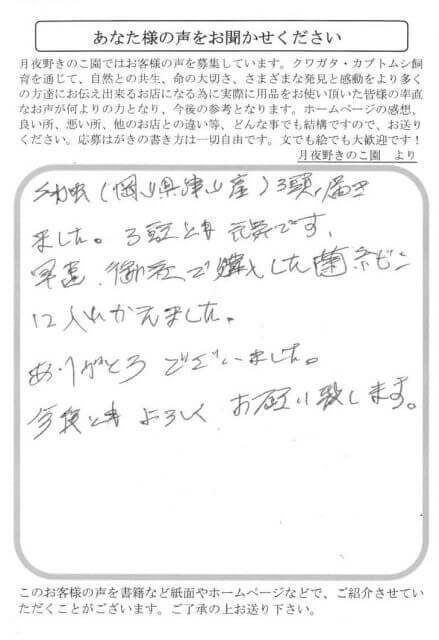 あなた様の声をお聞かせください
月夜野きのこ園ではお客様の声を募集しています。クワガタ・カブトムシ飼
育を通じて、自然との共生、命の大切さ、さまざまな発見と感動をより多く
の方達にお伝え出来るお店になる為に実際に用品をお使い頂いた皆様の率直
なお声が何よりの力となり、今後の参考となります。ホームページの感想、
良い所、悪い所、他のお店との違い等、どんな事でも結構ですので、お送り
ください。応募はがきの書き方は一切自由です。文でも絵でも大歓迎です！
月夜野きのこ園　より
幼虫（岡山県津山産）3頭、届き
ました。3頭とも元気です、
早速、御社で購入した菌糸ビン
に入れかえました。
ありがとうございました。
今後ともよろしくお願い致します。
このお客様の声を書籍など紙面やホームページなどで、ご紹介させてい
ただくことがございます。ご了承の上お送り下さい。